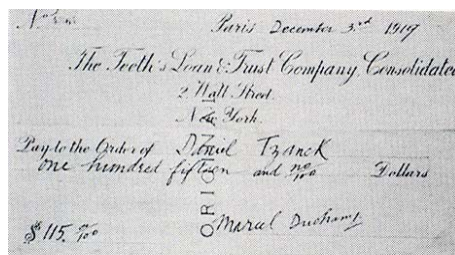 No
Paris December 3rd 1919
The Teeth's Loan & Trust Company, Consolidated
2 Wall Street.
New York.
Pay to the Order of Daniel Tzanck
one hundred fifteen and no/100 Dollars
ORIGINAL
$ 115. no/100 Marcel Duchamp